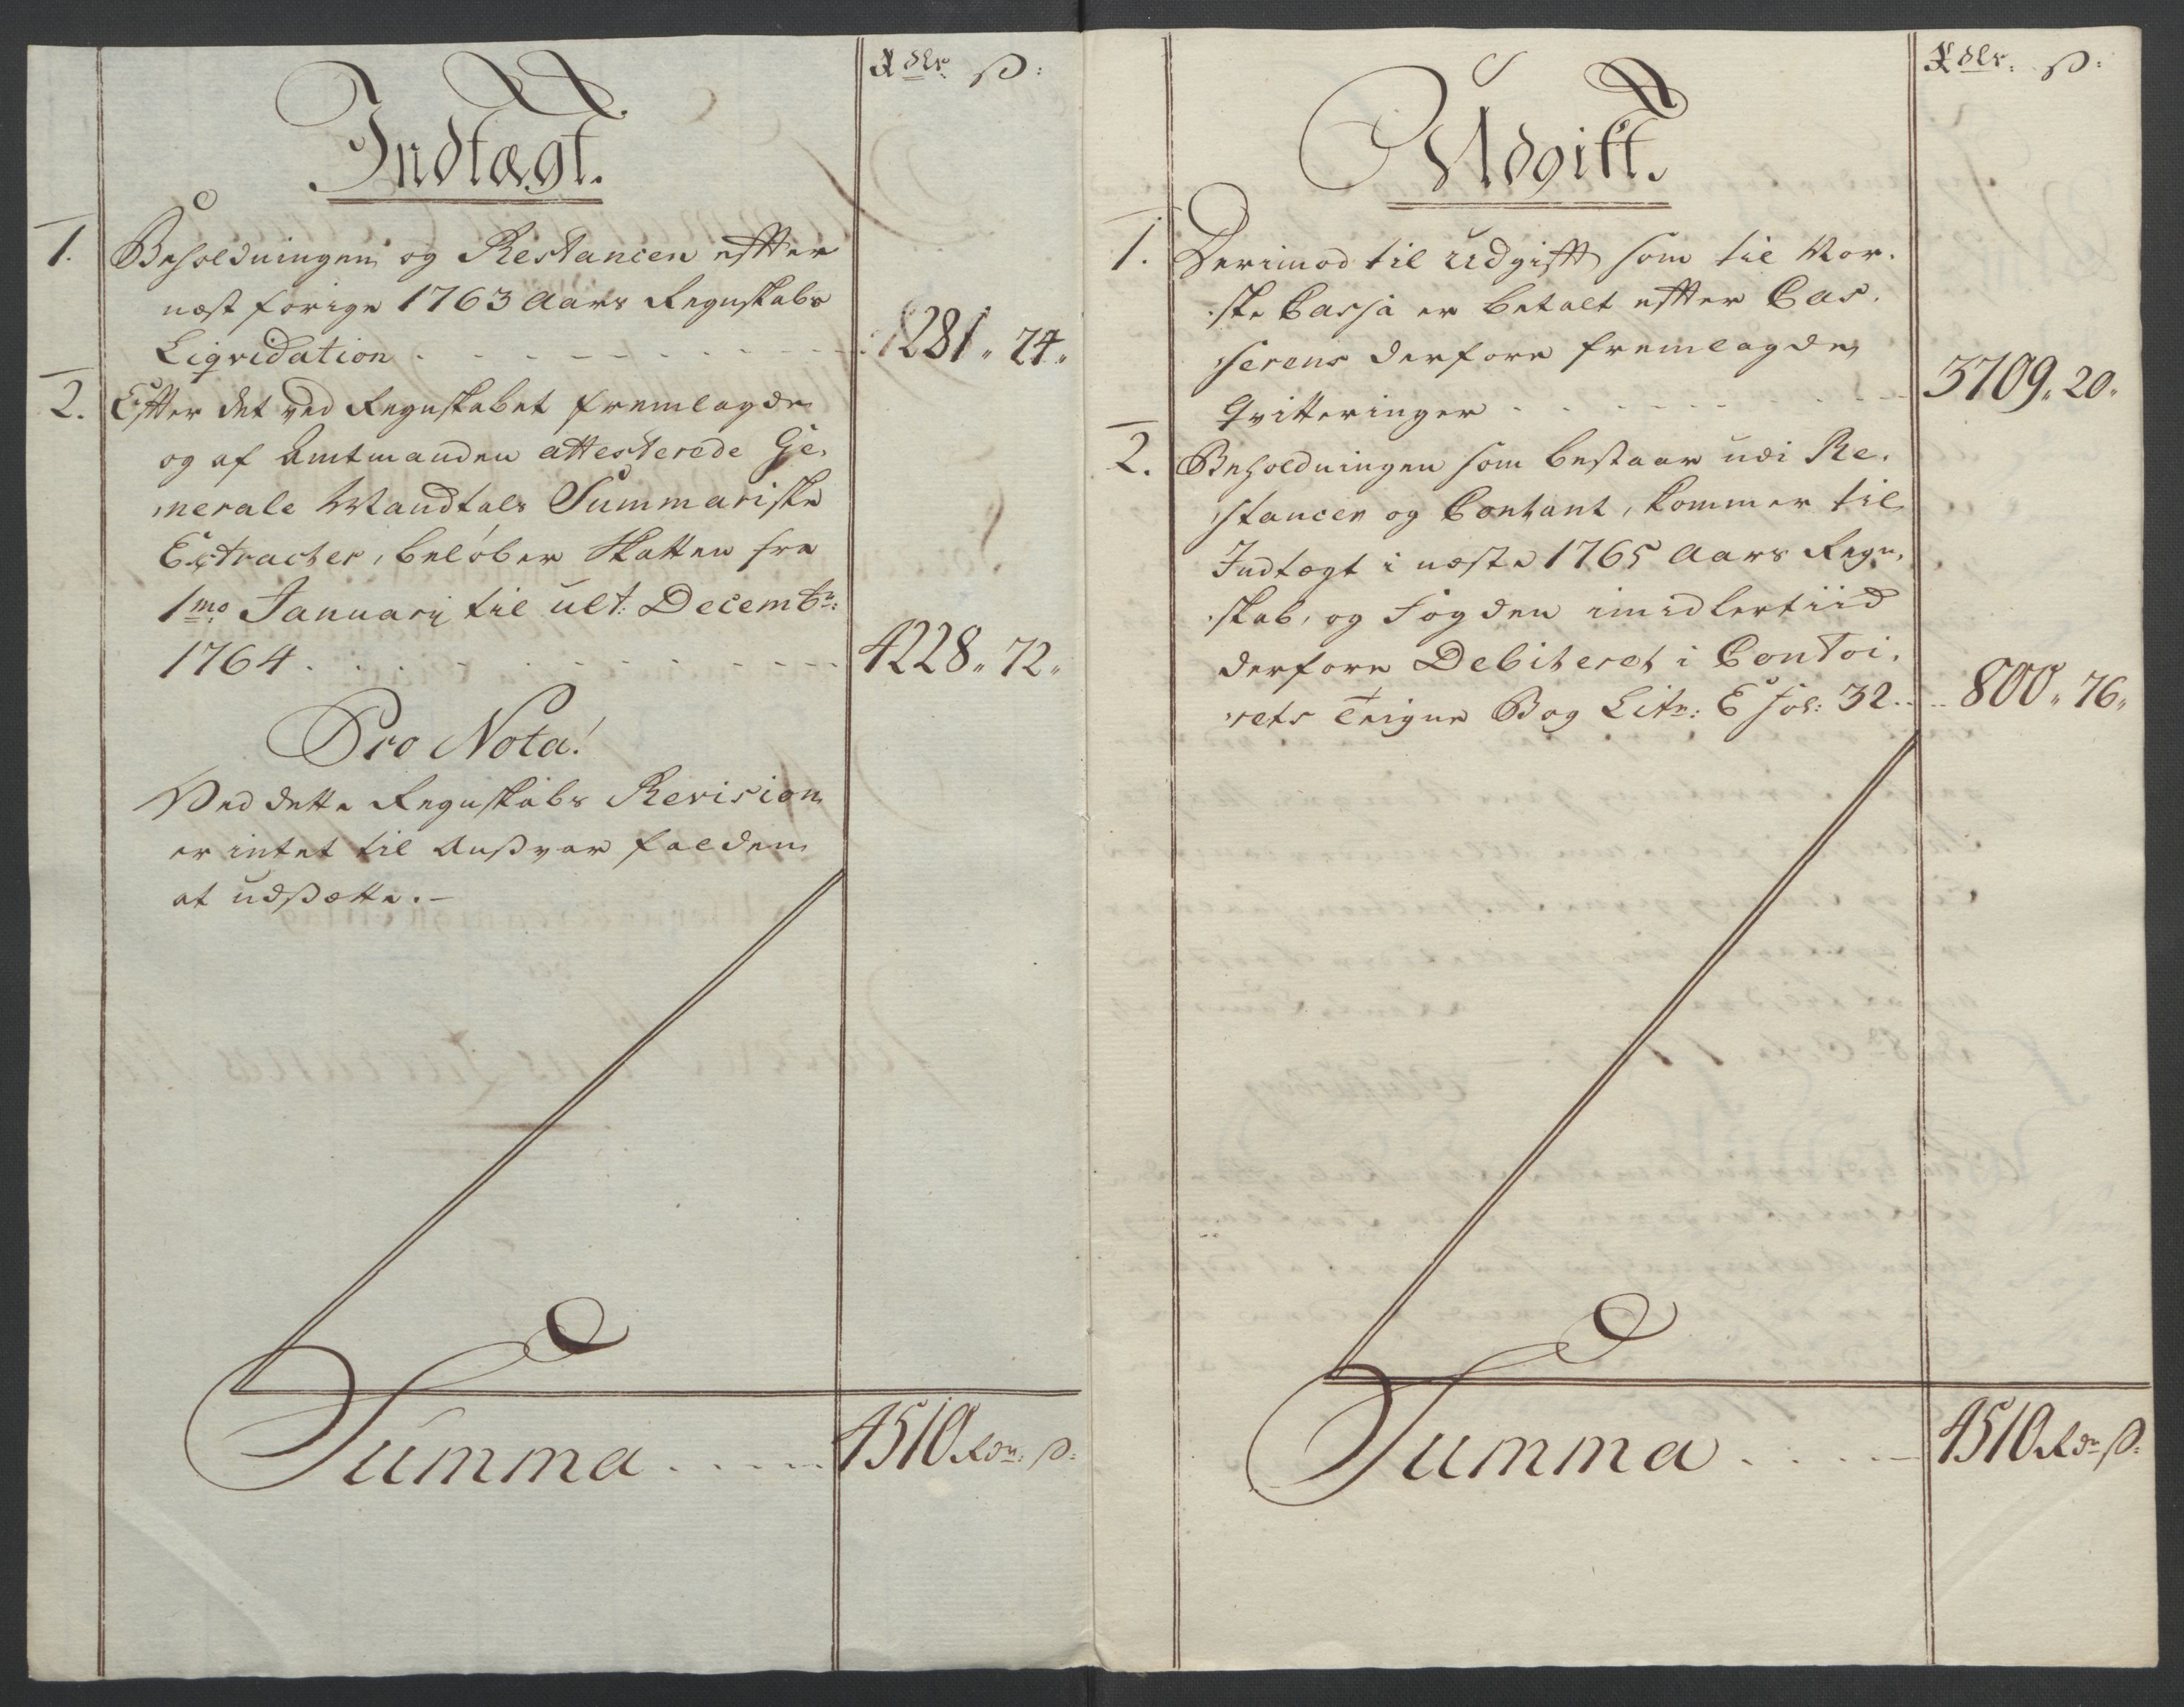 Indtægt.
Rdlr. ß:
1. Beholdningen og Restancen effter
næst forige 1763 Aars Regnskabs
Liqvidation . . . 281 „ 24 „
2. Effter det ved Regnskabet fremlagde
og af Amtmanden attesterede Ge-
nerale Mandtals Summariske
Extracter, beløber Skatten fra
1mo Januarij til ult: Decembr:
1764 . . . 4228 „ 72 „
Pro Nota!
Ved dette Regnskabs Revision
er intet til Ansvar falden
at udsætte. –
Summa . . . 4510 Rdr: ß:
Udgift.
Rdlr. ß:
1. Derimod til Udgift som til Nor-
ske Cassa er betalt effter Cas-
serens derfore fremlagde
Qvitteringer . . . 3709 „ 20 „
2. Beholdningen som bestaar udi Re-
stancer og Contant, kommer til
Indtægt i næste 1765 Aars Regn-
skab, og Fogden imidlertiid
derfore Debiteret i Contoi-
rets Bog Litr: E fol: 32 . . . 800 „ 76 „
Summa . . . 4510 Rdr ß: